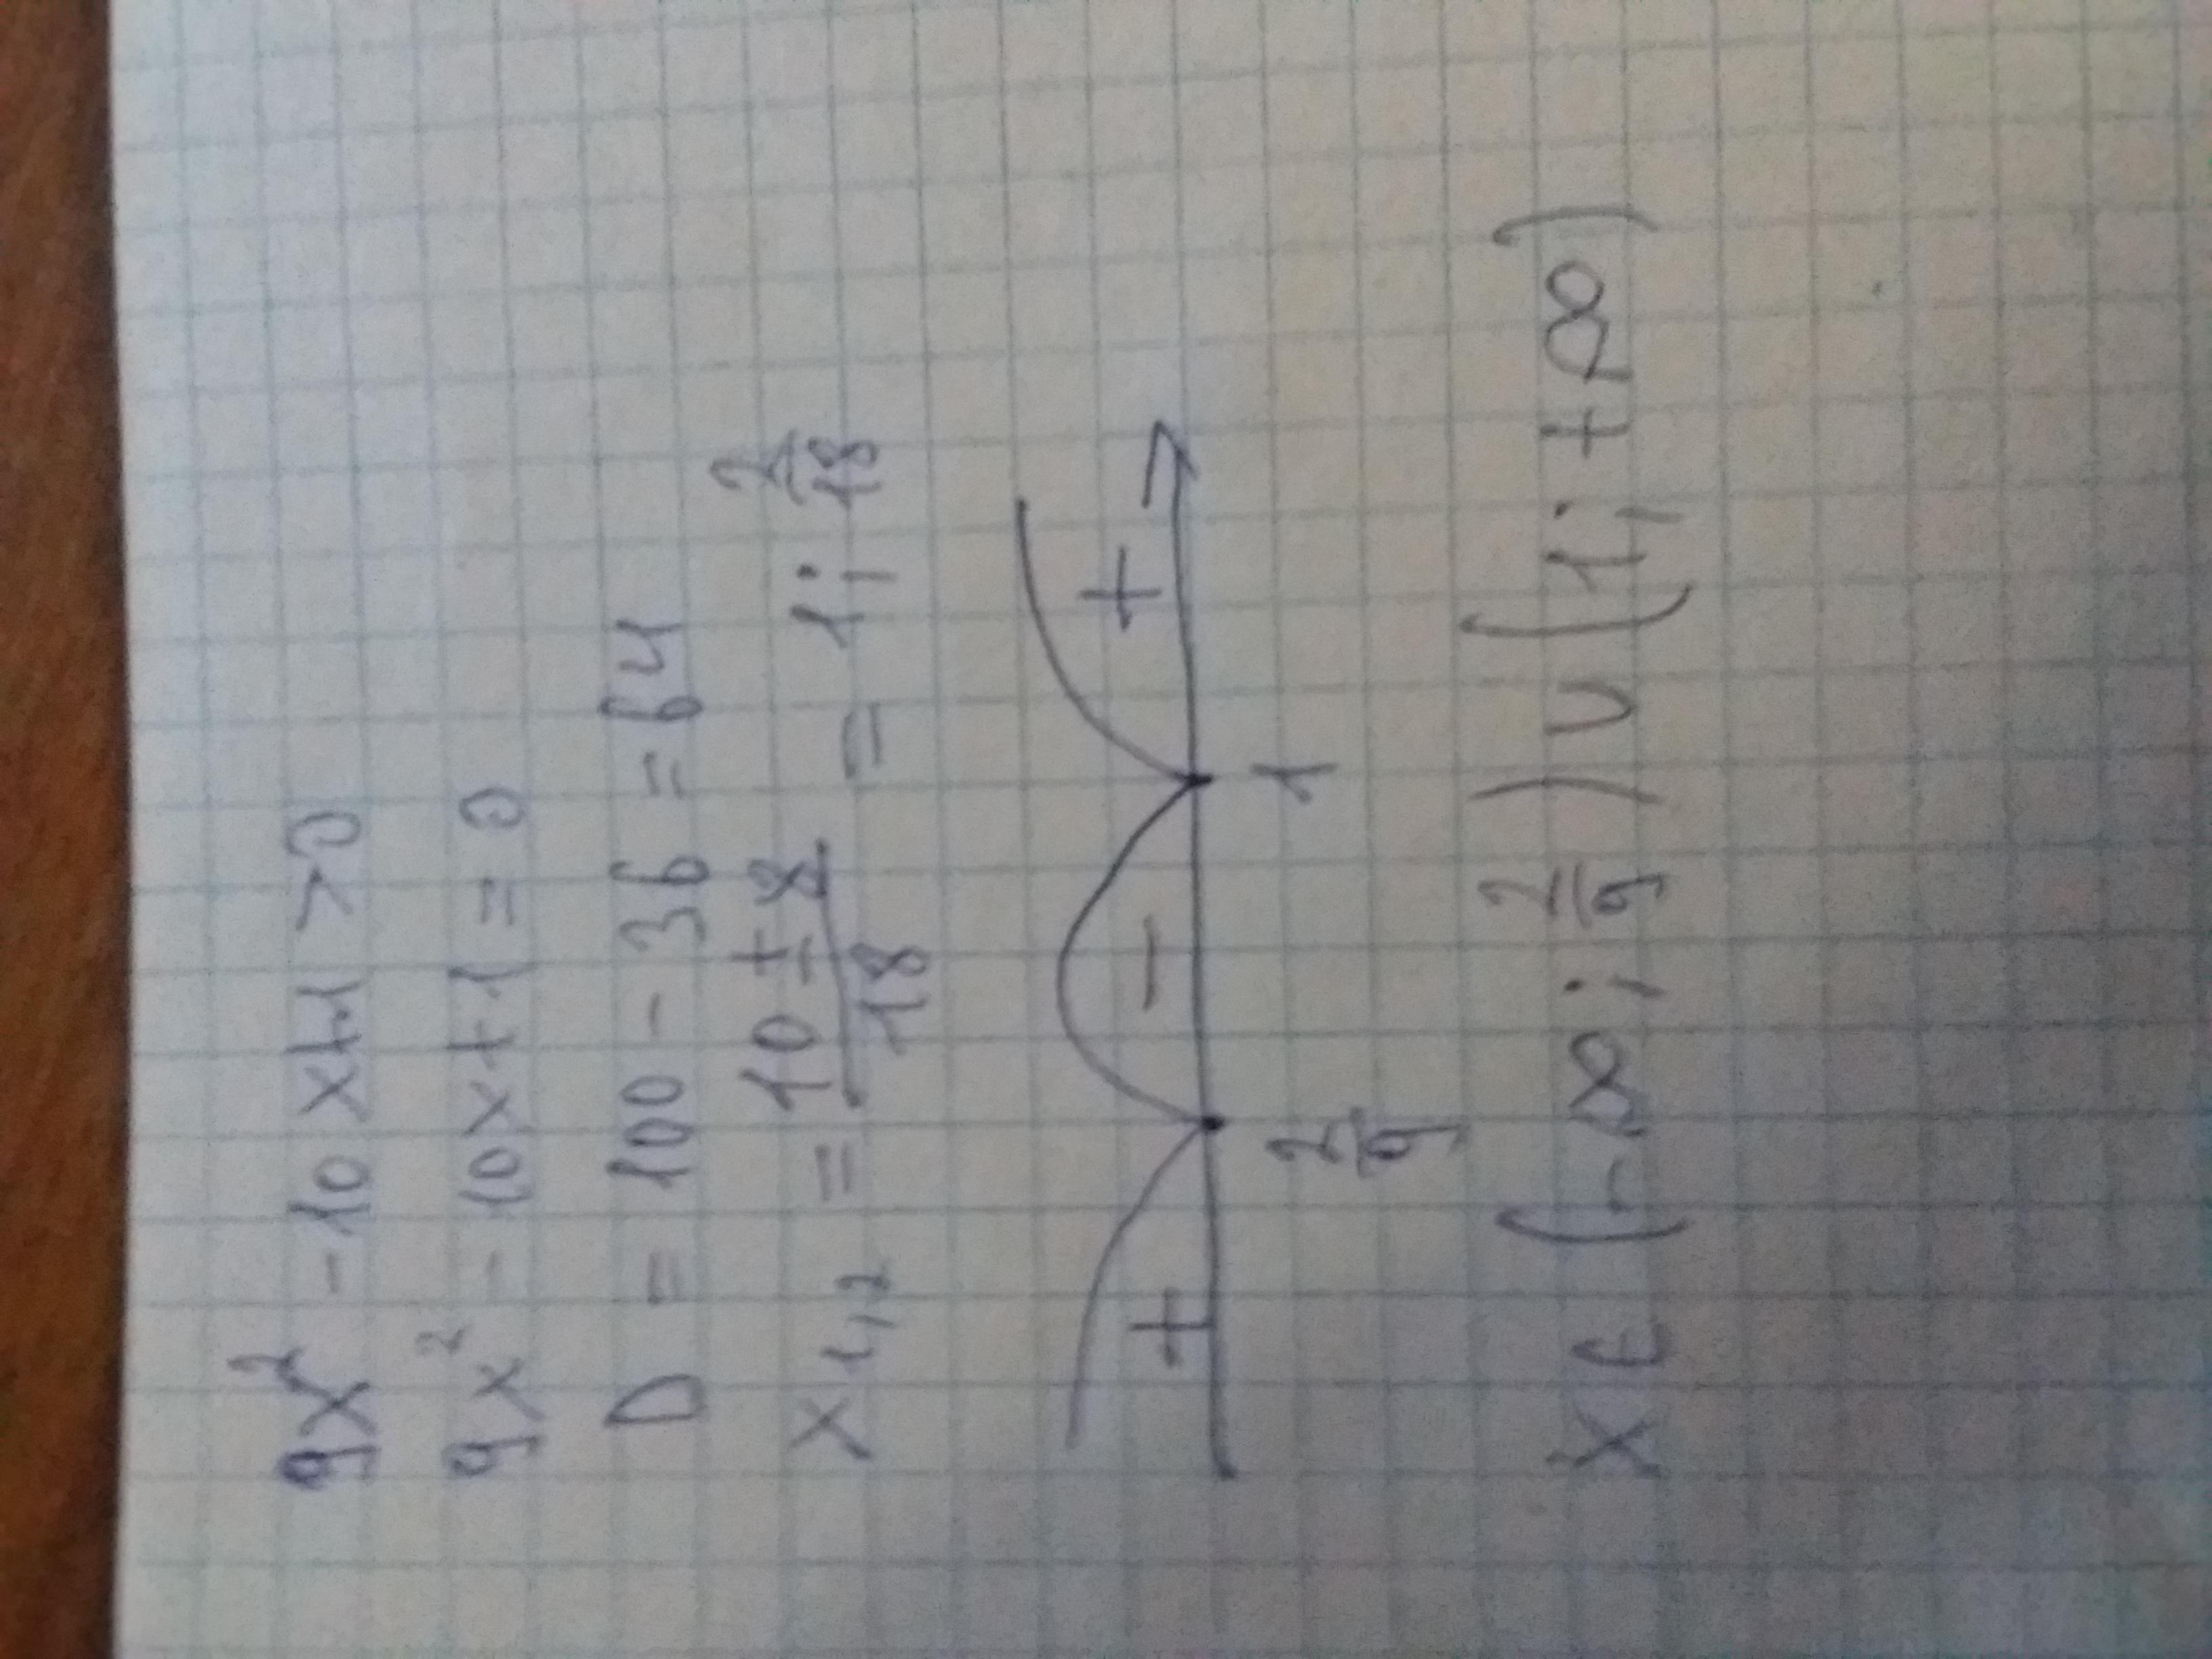 9x² - 10x+1 >0
9x² - 10x+1 = 0
D = 100 - 36 = 64
x₁,₂ = (10 ± 8)/18 = 1; 2/18
+ - +
2/9 1
x ∈ (-∞; 2/9) ∪ (1; +∞)